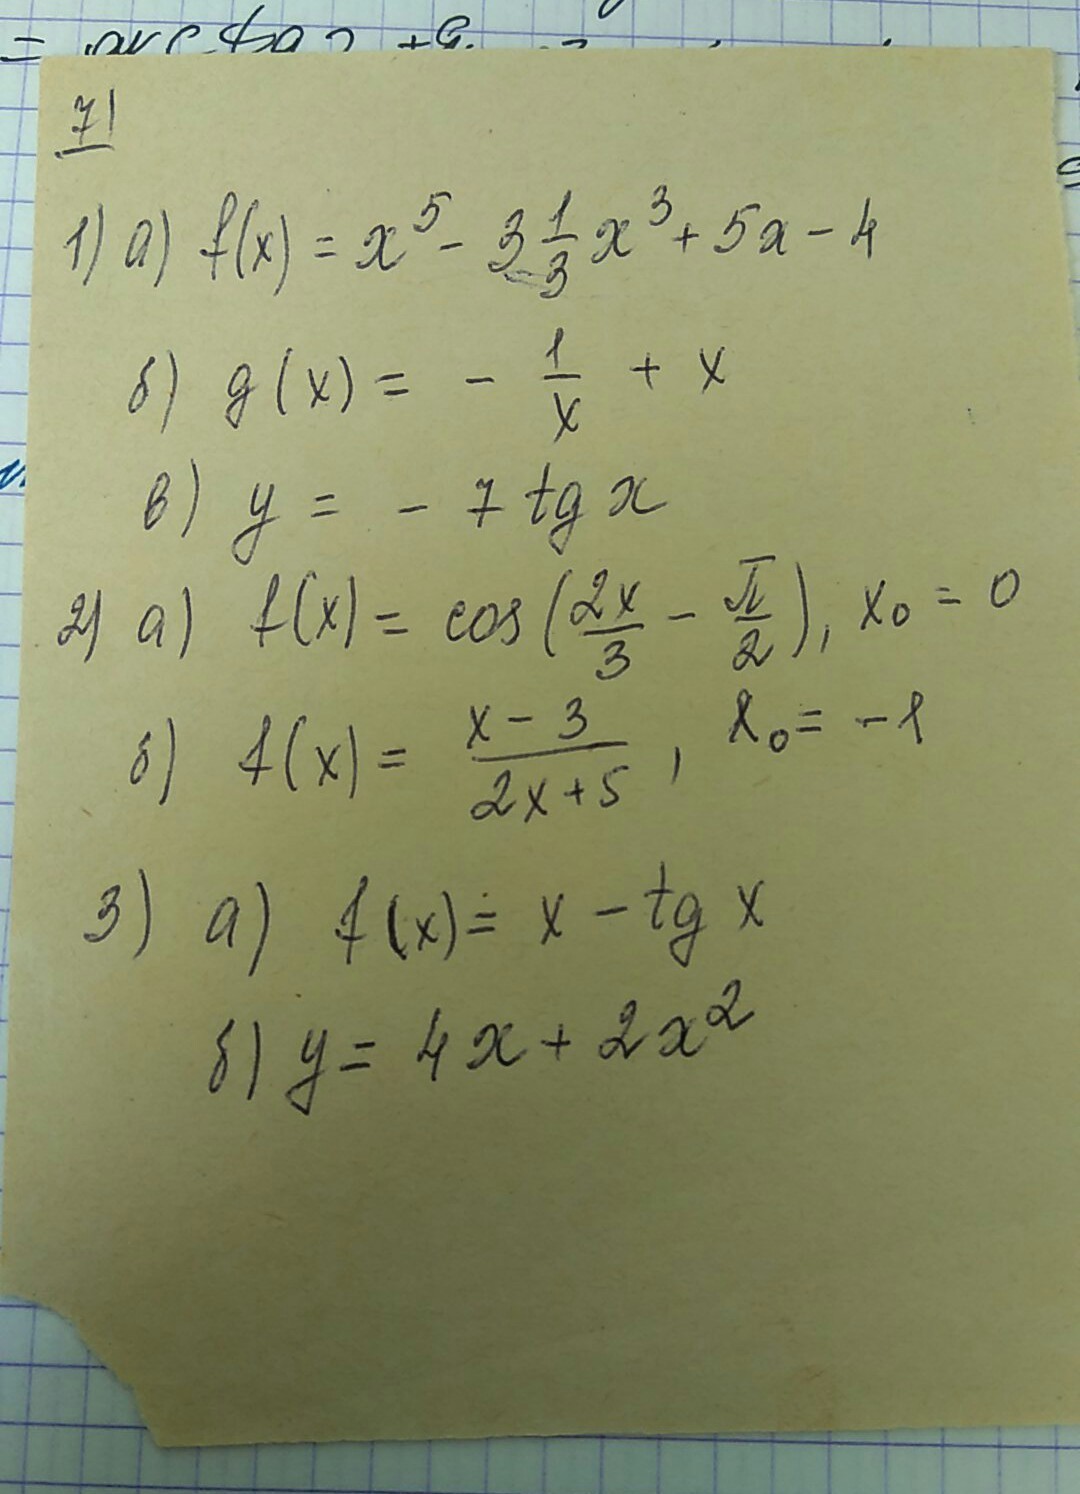 71
1) а) f(x) = x⁵ - 3 1/3 x³ + 5x - 4
б) g(x) = - 1/x + x
в) y = - 7 tg x
2) а) f(x) = cos(2x/3 - π/2), x₀ = 0
б) f(x) = (x - 3)/(2x + 5), x₀ = -1
3) а) f(x) = x - tg x
б) y = 4x + 2x²